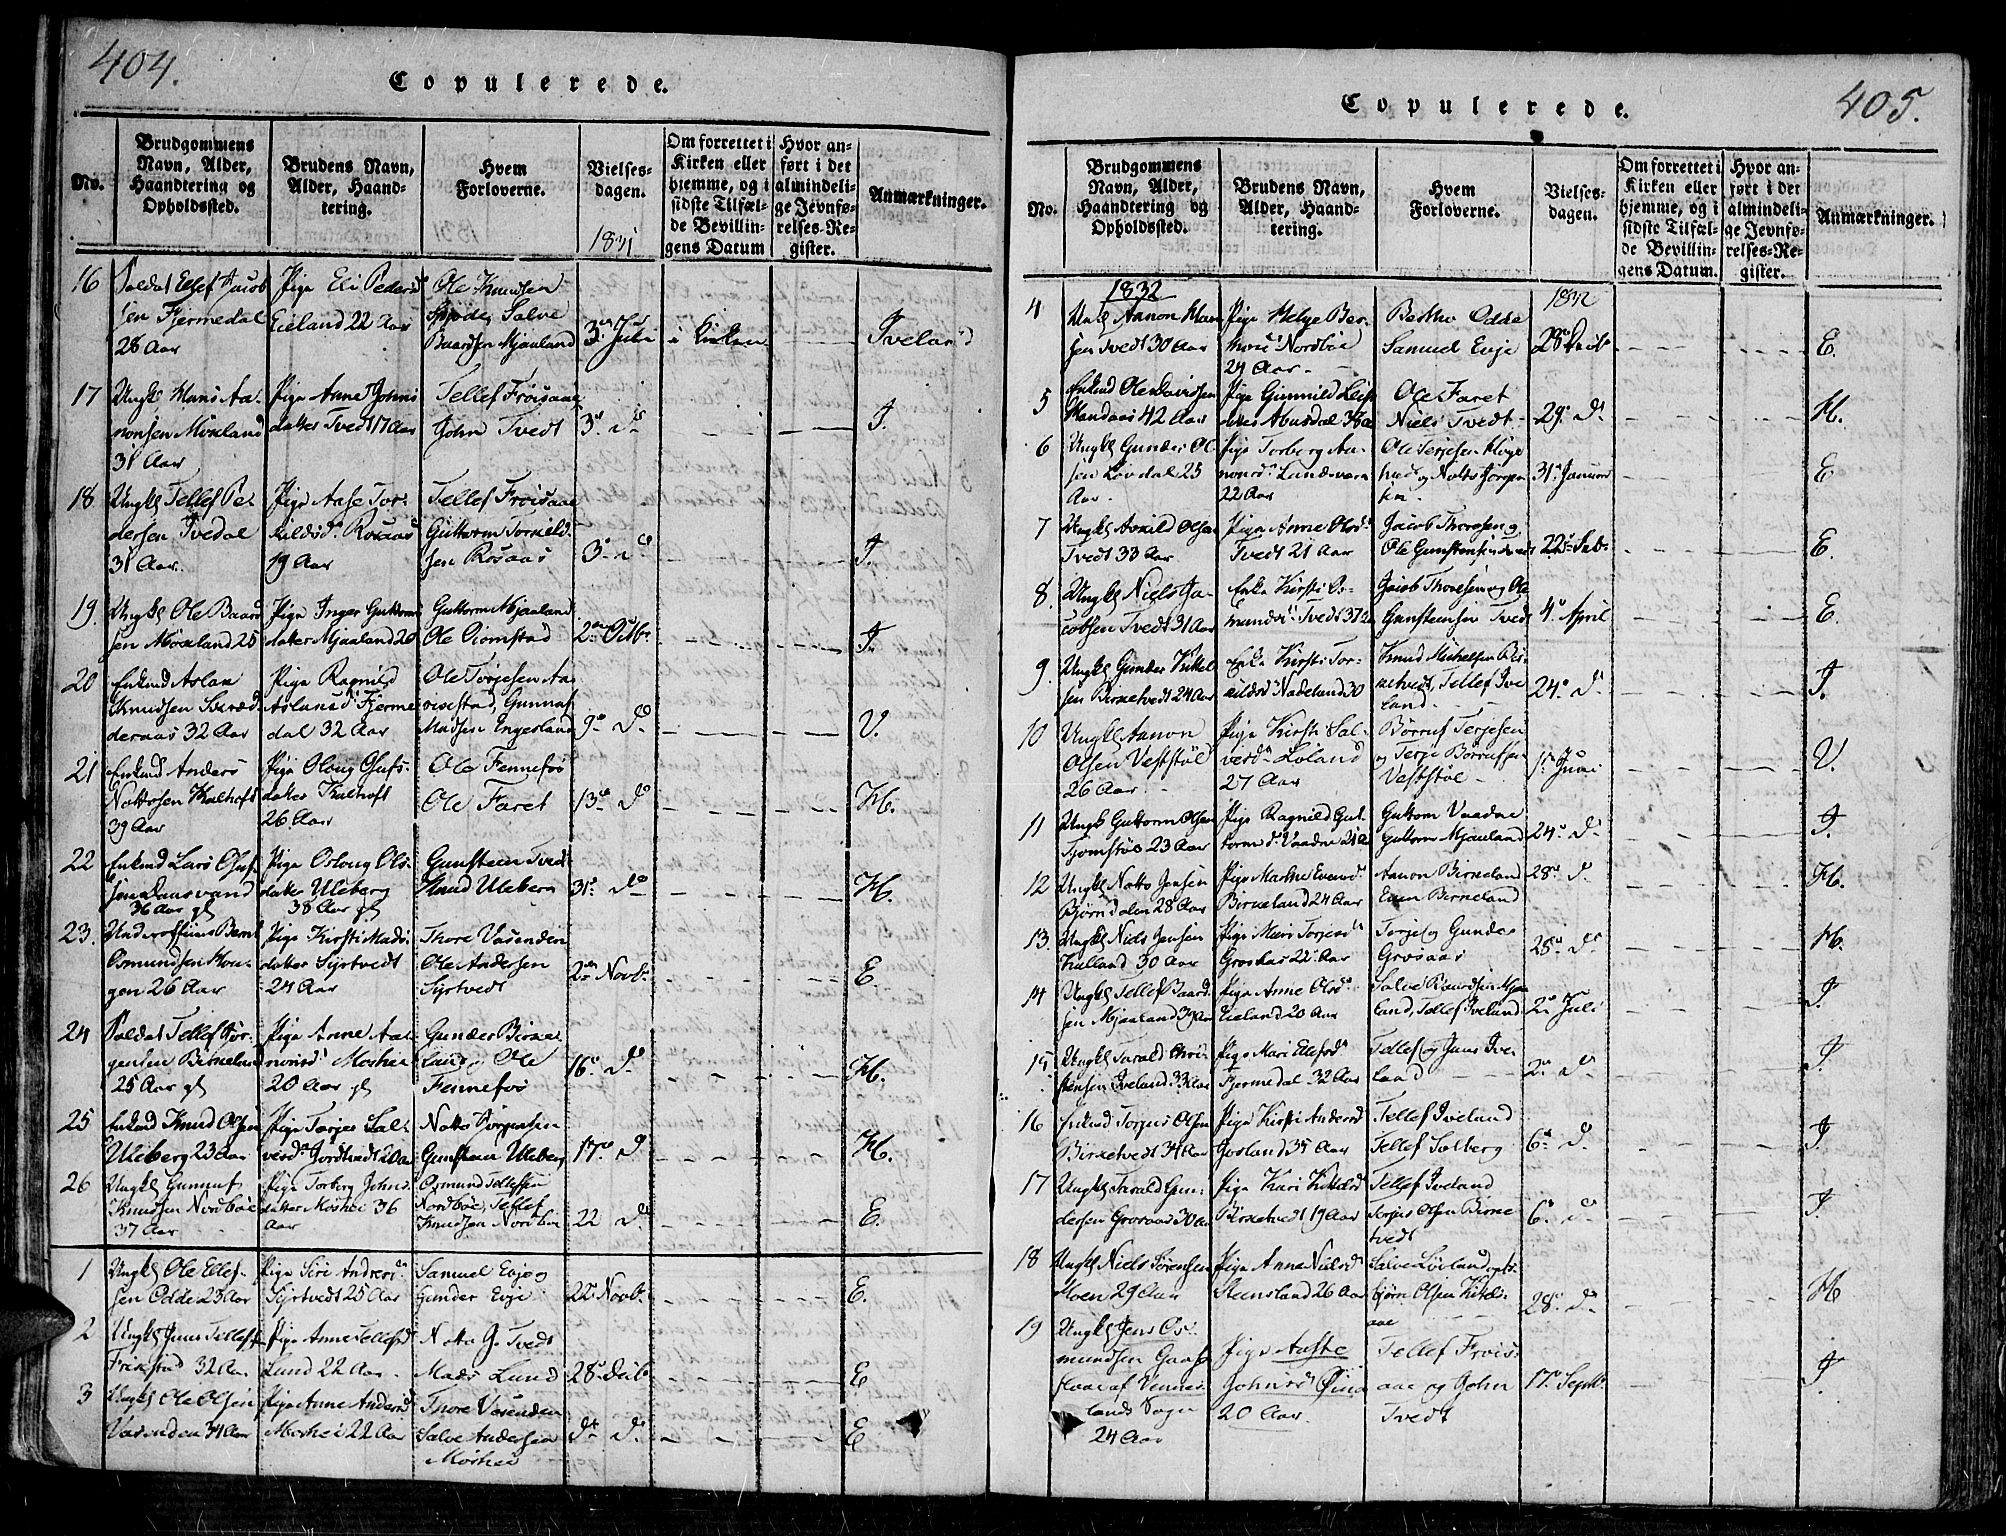 404.
Copulerede.
No.
Brudgommens Navn, Alder, Haandtering og Opholdssted.
Brudens Navn, Alder, Haandtering.
Hvem Forloverne.
Vielsesdagen.
Om forrettet i Kirken eller hjemme, og i sidste Tilfælde Bevillingens Datum
Hvor anført i det almindelige Jevnførelses-Register.
Anmærkninger.
1831
16
Soldat Ellef Jacob
sen Fjermedal
28 Aar
Pige Eli Peders
Eieland 22 Aar
Ole Knudsen
Salve
Baardsen Mjaaland
3 Juli
i Kirken
Iveland
17
Ungk Hans Aa-
nonsen Moseland
31 Aar
Pige Anne Johns
datter Tvedt 17 Aar
Tellef Frøisaae
John Tvedt
3. d
I.
18
Ungk Tellef Pe-
dersen Ivedal
31 Aar.
Pige Aase Tor-
kildsd. Rosaas
19 Aar
Tellef Froisaae
Guttorm Torkild-
sen Rosaas
3. d
I.
19.
Ungk Ole Baard
sen Moseland 25
Pige Inger Guttorms
datter Mjaaland 20
Guttorm Mjaaland
Ole Riomstad
2 Octb.
I.
20
Enkmd Aslan
Knudsen
deraas 32 Aar
Pige Ragnild
Aslansd Fjerme
dal 32 Aar
Ole Torjesen Aa
Gunnuf
Madsen Engesland
9 d.
V.
21
Enkmd Anders
Nottosen Kalhoft
39 Aar
Pige Oloug Olufs-
datter Kalhoft
26 Aar
Ole Fennefos
Ole Faret
13 d
H.
22
Enkmd Lars Oluf
sen Dansvand
36 Aar
Pige Oslong Ols
datter Uleberg
38 Aar
Gunsteen Tvedt
Knud Uleberg
31 d
H.
23.
Underofficeer Bernt
Osmundsen Hou-
gen 26 Aar
Pige Kirsti Mads
datter Syrtvedt
24 Aar
Thore Vasenden
Ole Andersen
Syrtvedt
2 Novb.
E.
24
Soldat Tellef Jør-
gensen Birkeland
25 Aar
Pige Anne Aa-
nonsd Moshei
20 Aar
Gunder Birke
land, Ole
Fennefos
16 d
H.
25
Enkmd Knud Olsen
Uleberg 23 Aar
Pige Torjer Sal-
vesd Jordtvedt 20 Aar
Notto
Gunsteen Uleberg
17 d
H.
26
Ungk Gunnuf
Knudsen Nordbøe
37 Aar
Pige Torberg Johns
datter Moshei 36
Aar
Osmund Tellefsen
Nordbøe, Tellef
Knudsen Nordbøe
22 d
E.
1
Ungk Ole Ellef-
sen Odde 23 Aar
Pige Siri Anders
Syrtvedt 25 Aar
Samuel Evje og
Gunder Evje
22 Novb.
E.
2
Ungk Jens Tellefs
Frikstad 32 Aar
Pige Anne Tellefsd
Lund 22 Aar
Notto G. Tvedt
Mads Lund
28
E
3
Ungk Ole Olsen
Vasenden 34 Aar
Pige Anne Andersd
Moshei 22 Aar
Thore Vasenden
Salve Andersen
Moshei
d. d.
E
405.
Copulerede.
No.
Brudgommens Navn, Alder, Haandtering og Opholdssted.
Brudens Navn, Alder, Haandtering.
Hvem Forloverne.
Vielsesdagen.
Om forrettet i Kirken eller hjemme, og i sidste Tilfælde Bevillingens Datum.
Hvor anført i det almindelige Jevnførelses-Register.
Anmærkninger.
1832
1832
4
Ungk Aanon Han
sen Tvedt 30 Aar
Pige Helge Ber-
Nordbøe
24 Aar.
Odde
Samuel Evje
28
E.
5
Enkmd Ole Davidsen
Pandaas 42 Aar
Pige Gunnild
Ole Faret
Niels Tvedt
29 d
H.
6
Ungk Gunder Ol
sen Løvdal 25
Aar.
Pige Torberg Aa-
nonsd Landsverk
22 Aar
Ole Terjesen
31 Januar
E
7
Ungk Askild Olsen
Tvedt 33 Aar
Pige Anne Olsd
Tvedt 21 Aar
Jacob Thoresen og
Ole Gunstensen
22
E.
8.
Ungk Niels Ja-
cobsen Tvedt 31 Aar
Enke Kirsti Os-
mundsd Tvedt 37
Jacob Thoresen og Ole
Gunsteinsen Tvedt
4 April
E.
9
Ungk Gunder Kittel
sen Birketvedt 24 Aar
Enke Kirsti Tor-
kildsd Nateland 30
Knud Michelsen Bir-
ketvedt, Tellef Ive
land.
24 d
I.
10
Ungk Aanon
Olsen Vestøl
26 Aar
Pige Kirsti Sal-
vesd. Løland
27 Aar
Børruf Terjesen
og Terje Børrufsen
Vestøl
1 Juni
V.
11
Ungk Guttorm Olsen
Tjomstøe 23 Aar
Pige Ragnild Gut-
torm d. Vaadne 21
Guttorm Vaadne
Guttorm Mjaaland
24 d
I.
12
Ungk Notto Jensen
Bjørndalen 28 Aar
Pige Marthe Evensd
Birkeland 24 Aar
Aanon Birkeland
Even Birkeland
28 d.
H.
13.
Ungk Niels Jensen
Kulland 30 Aar
Pige Mari Torjesd
Grosaas 22 Aar
Torje og Gunder
Grosaas
28 d
H.
14
Ungk Tellef Baard
sen Mjaaland 39 Aar
Pige Anne Olsd
Eieland 20 Aar
Salve Baardsen Mjaa
land, Tellef Iveland
2 Juli
I.
15
Ungk Tarald Chri
stensen Iveland 33 Aar
Pige Mari Ellefsd
Fjermedal 32 Aar
Tellef og Jens Ive
land
2 d
I.
16
Enkmd Torjus Olsen
Birketvedt 34 Aar
Pige Kirsti Andersd
Josland 35 Aar
Tellef Iveland
Tellef Solberg
6 d.
I.
17
Ungk Tarald Gun-
dersen Grosaas 30 Aar
Pige Kari Kittelsd
Birketvedt 19 Aar
Tellef Iveland
Torjus Olsen Birke
tvedt
6 d.
I.
18
Ungk Niels Sørensen
Moen 29 Aar
Pige Anne Nielsd
Steensland 26 Aar
Salve Løiland, Es-
bjørn Olsen Kittels
aae
28 d.
H
19
Ungk Jens Os-
mundsen Gaase
flaae af Vennes-
lands Sogn
24 Aar
Pige Aaste
Johnsd
20 Aar.
Tellef Frøis-
aae og John
Tvedt
17 Septbr.
I.